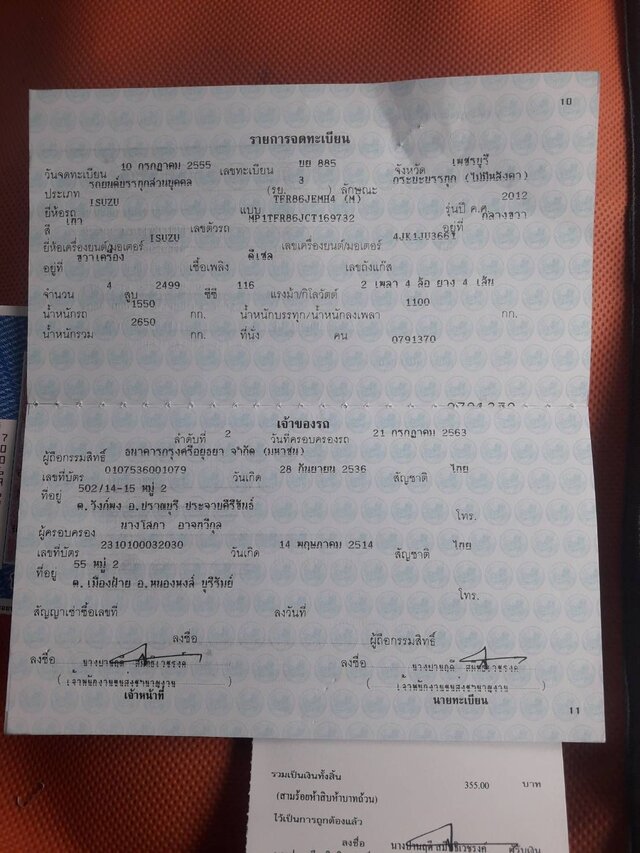 10
รายการจดทะเบียน
วันจดทะเบียน 10 กรกฎาคม 2555 เลขทะเบียน บย 885 จังหวัด เพชรบุรี
ประเภท รถยนต์บรรทุกส่วนบุคคล (รย. 3 ) ลักษณะ กระบะบรรทุก (ไม่มีหลังคา)
ยี่ห้อรถ ISUZU แบบ TFR86JEMH4 (M) รุ่นปี ค.ศ. 2012
สี เทา เลขตัวรถ MP1TFR86JCT169732 อยู่ที่ กลางขวา
ยี่ห้อเครื่องยนต์/มอเตอร์ ISUZU เลขเครื่องยนต์/มอเตอร์ 4JK1JU3661
อยู่ที่ ขวาเครื่อง เชื้อเพลิง ดีเซล เลขถังแก๊ส
จำนวน 4 สูบ 2499 ซีซี 116 แรงม้า/กิโลวัตต์ 2 เพลา 4 ล้อ ยาง 4 เส้น
น้ำหนักรถ 1550 กก. น้ำหนักบรรทุก/น้ำหนักลงเพลา 1100 กก.
น้ำหนักรวม 2650 กก. ที่นั่ง คน 0791370
เจ้าของรถ
ลำดับที่ 2 วันที่ครอบครองรถ 21 กรกฎาคม 2563
ผู้ถือกรรมสิทธิ์ ธนาคารกรุงศรีอยุธยา จำกัด (มหาชน)
เลขที่บัตร 0107536001079 วันเกิด 28 กันยายน 2536 สัญชาติ ไทย
ที่อยู่ 502/14-15 หมู่ 2
ต.วังก์พง อ.ปราณบุรี ประจวบคีรีขันธ์ โทร.
ผู้ครอบครอง นางโสภา อาจทวีกุล
เลขที่บัตร 2310100032030 วันเกิด 14 พฤษภาคม 2514 สัญชาติ ไทย
ที่อยู่ 55 หมู่ 2
ต.เมืองฝ้าย อ.หนองหงส์ บุรีรัมย์ โทร.
สัญญาเช่าซื้อเลขที่ ลงวันที่
ลงชื่อ ผู้ถือกรรมสิทธิ์
ลงชื่อ ลงชื่อ
(เจ้าพนักงานขนส่งชำนาญงาน) (เจ้าพนักงานขนส่งชำนาญงาน)
เจ้าหน้าที่ นายทะเบียน
11
รวมเป็นเงินทั้งสิ้น 355.00 บาท
(สามร้อยห้าสิบห้าบาทถ้วน)
ไว้เป็นการถูกต้องแล้ว
ลงชื่อ